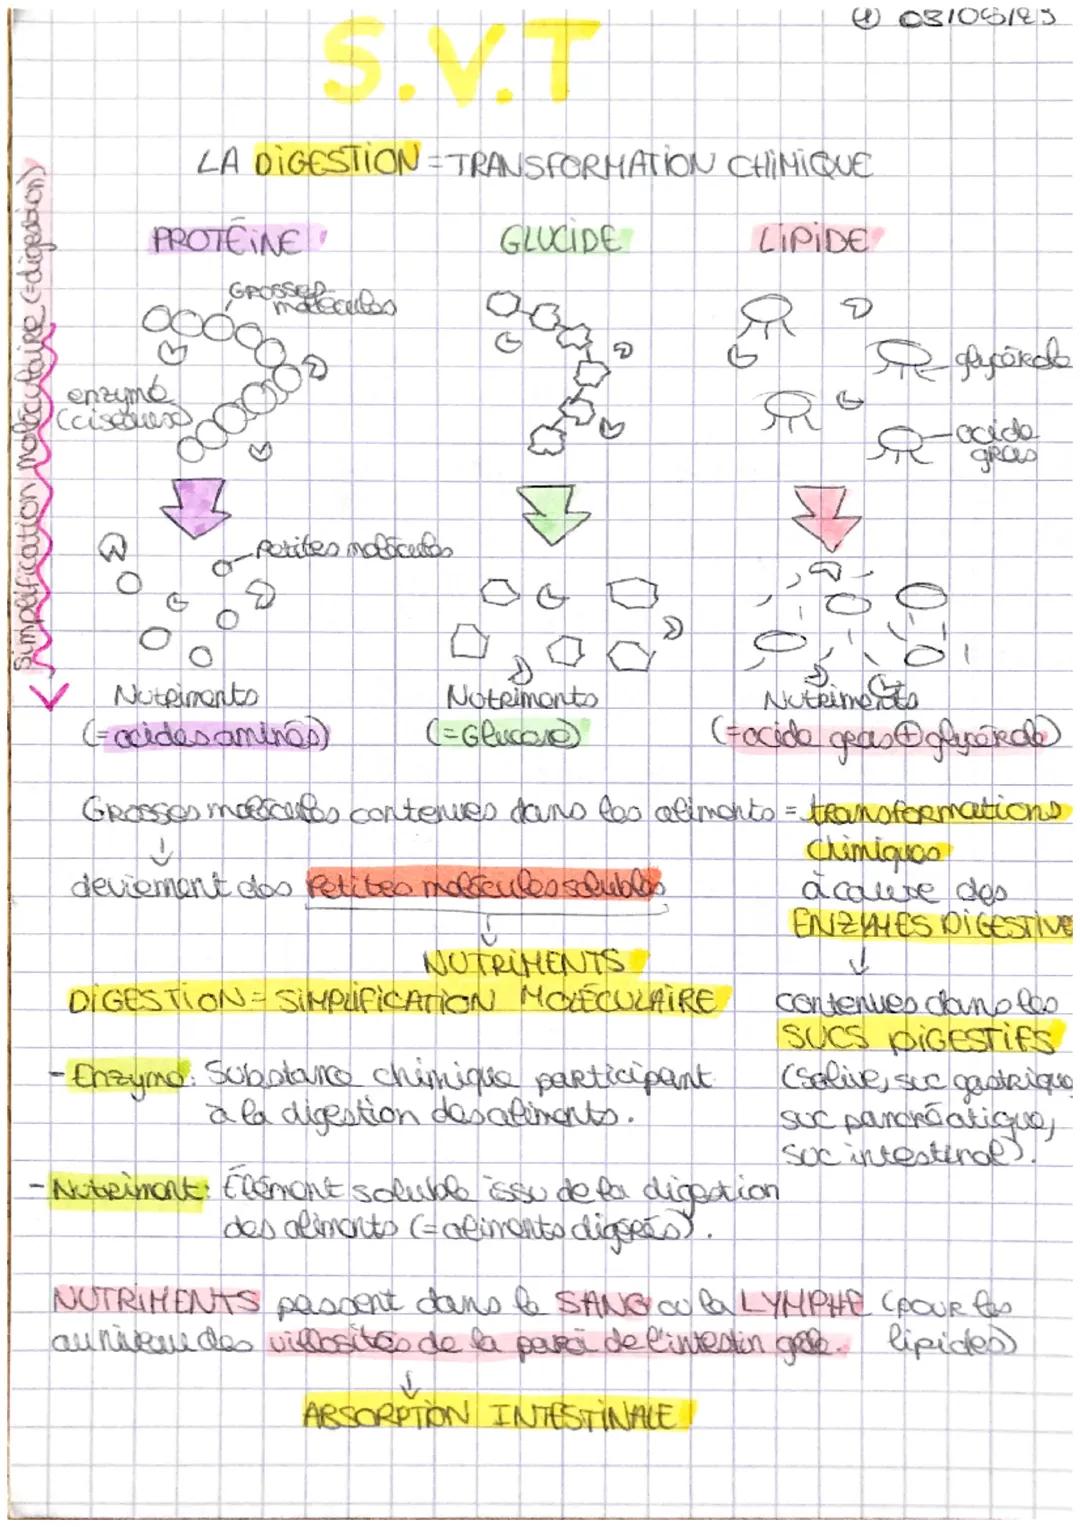 S.V.T
LA DIGESTION = TRANSFORMATION CHIMIQUE
PROTÉINE
GLUCIDE
LIPIDE
simplification moléculaire (=digestion)
GROSSES
molécules
enzyme
(ciseaux)
glycérole
acide
gras
petites molécules
Nutriments
(=acides aminés)
Nutriments
(=Glucose)
Nutriments
(=acide gras + glycérole)
Grosses molécules contenues dans les aliments = transformations
chimiques
deviennent des petites molécules solubles
à cause des
ENZYMES DIGESTIVE
NUTRIMENTS
DIGESTION = SIMPLIFICATION MOLÉCULAIRE
contenues dans les
SUCS DIGESTIFS
(Salive, suc gastrique
suc pancréatique,
suc intestinal).
- Enzyme: Substance chimique participant
à la digestion des aliments.
- Nutriment: Élément soluble issu de la digestion
des aliments (= aliments digérés).
NUTRIMENTS passent dans le SANG ou la LYMPHE (pour les
lipides)
au niveau des villosités de la paroi de l'intestin grêle.
ABSORPTION INTESTINALE